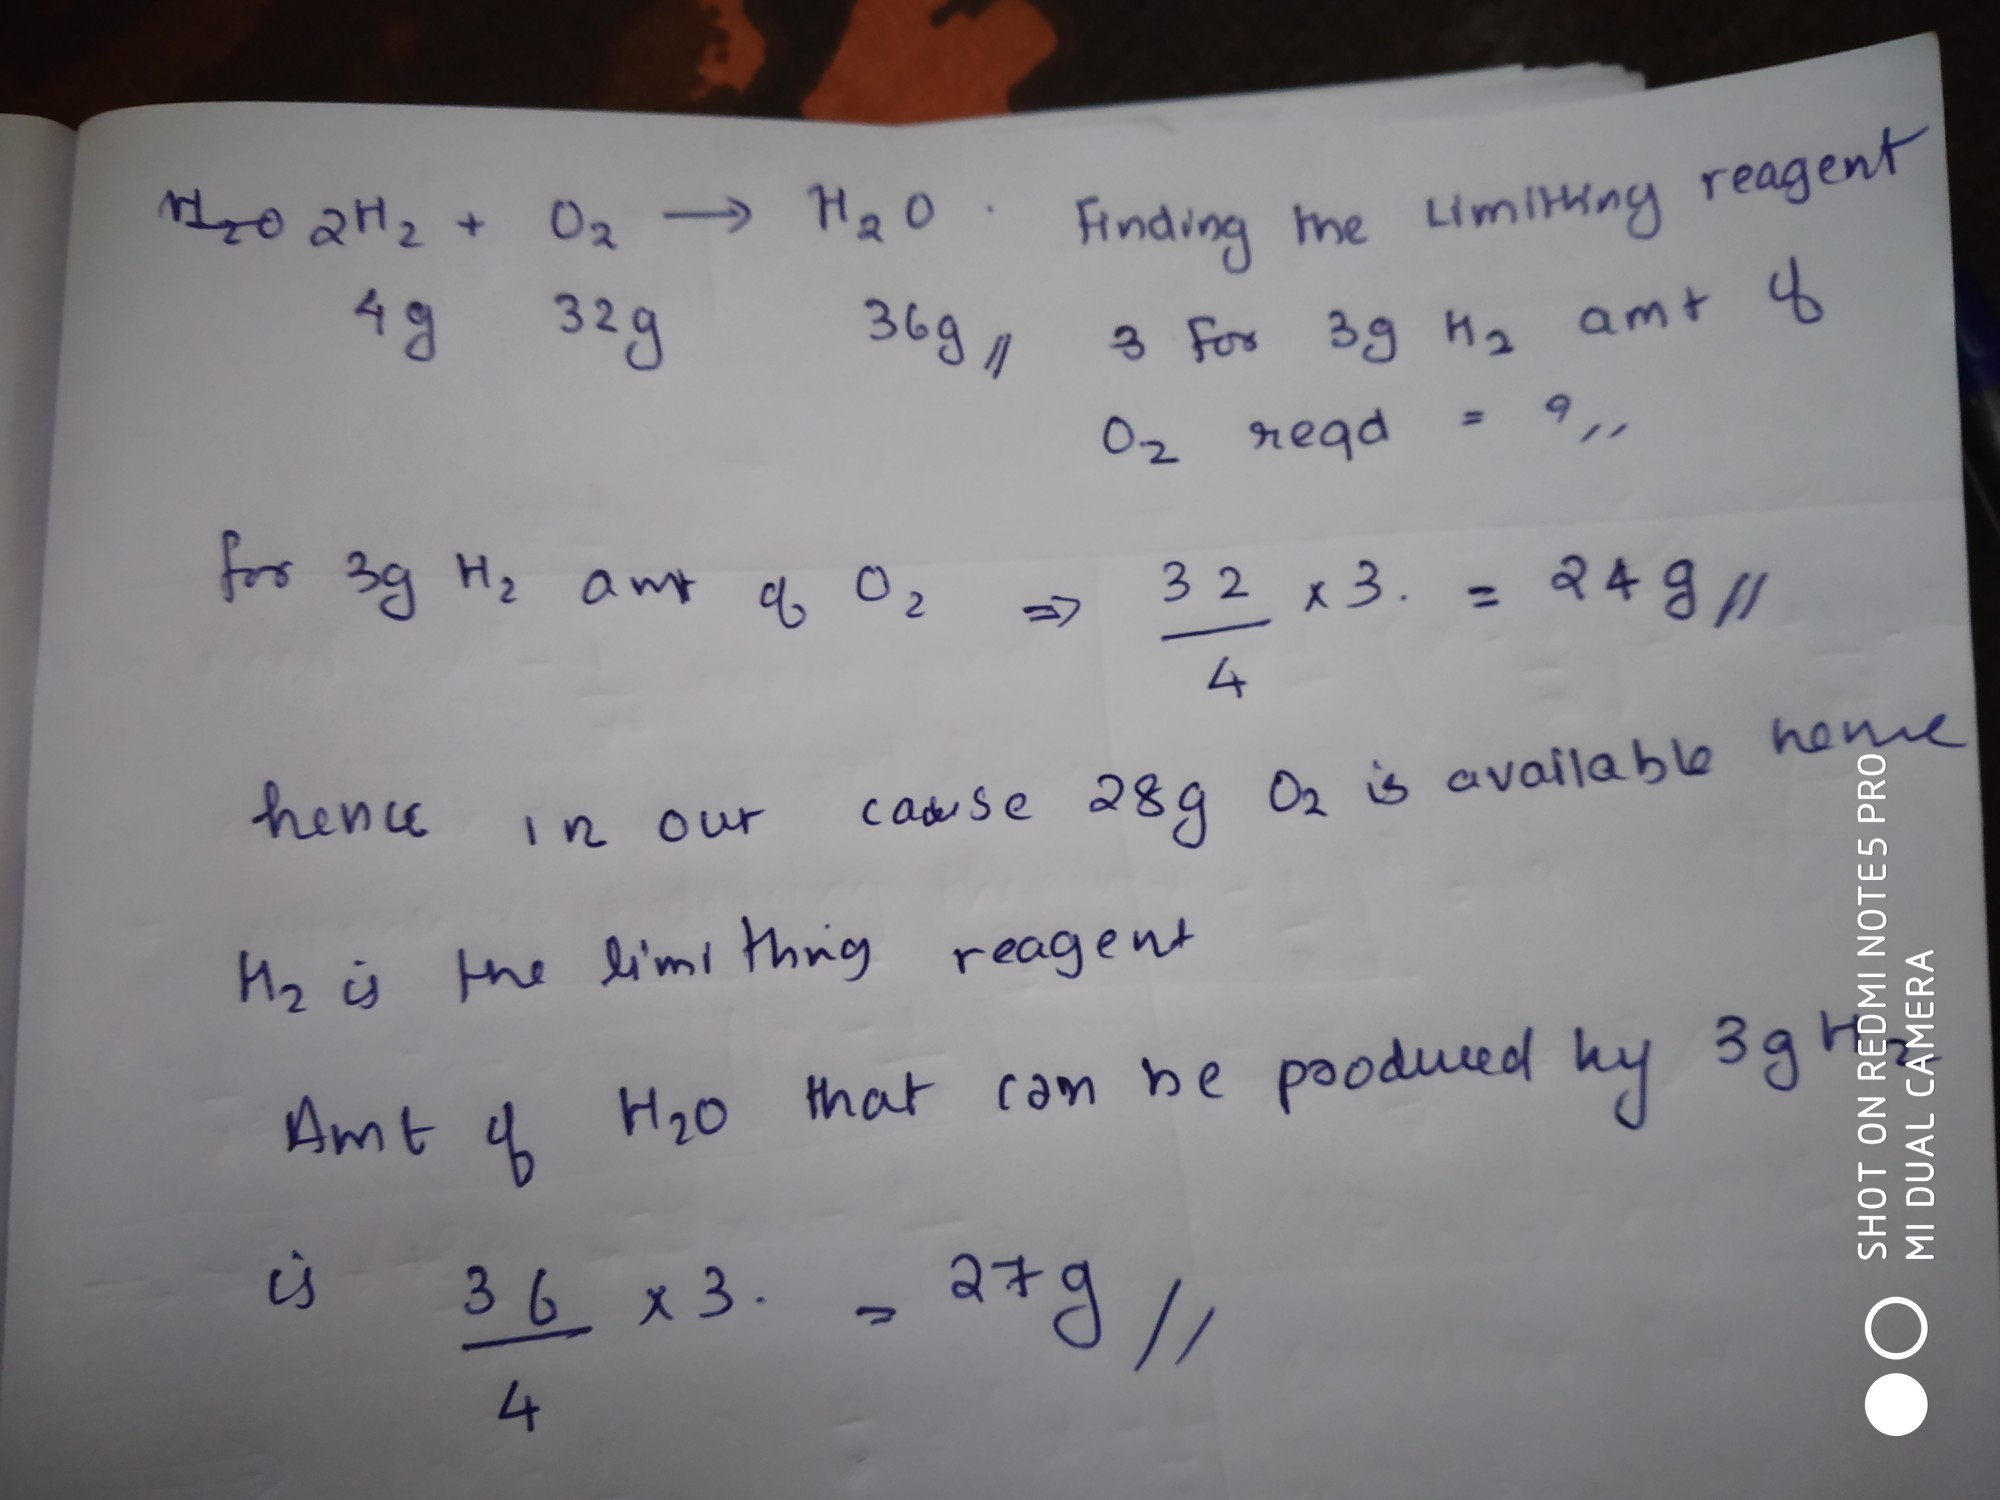 H₂O 2H₂ + O₂ → H₂O. Finding the Limithing reagent
4g 32g 36g // 3 For 3g H₂ amt of
O₂ reqd = ?,,
for 3g H₂ amt of O₂ ⇒ 32/4 x 3. = 24g //
hence in our cause 28g O₂ is available hence
H₂ is the limithing reagent
Amt of H₂O that can be produced by 3g H₂
is 36/4 x 3. = 27g //
SHOT ON REDMI NOTE5 PRO
MI DUAL CAMERA